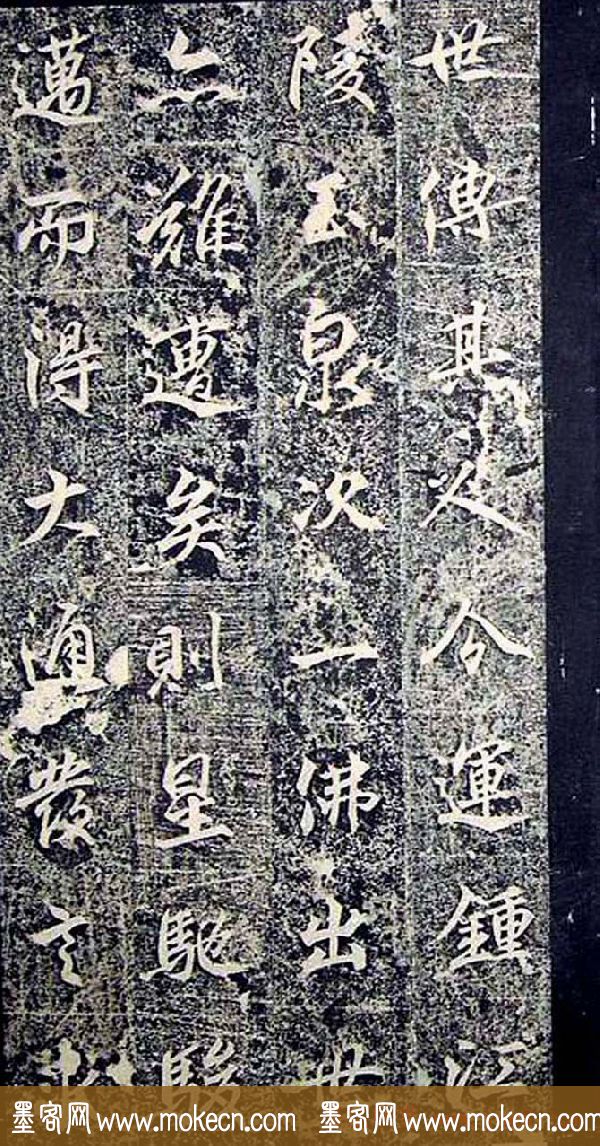 世傳其人今運鍾江
陵玉泉次一佛出世
亦難遭矣則星馳駿
邁而得大通發言
墨客网 www.mokecn.com 墨客网 www.mokecn.com